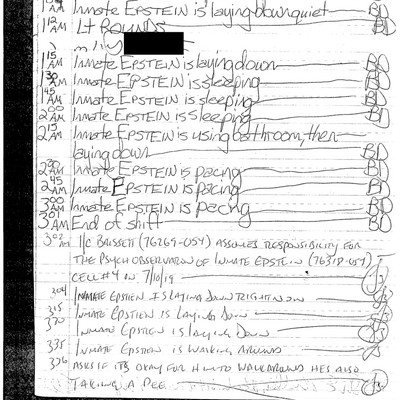 AM Inmate EPSTEIN is laying down quiet BD
1 12 AM LT ROUNDS BD
1 15 AM Inmate EPSTEIN is laying down BD
1 30 AM Inmate EPSTEIN is sleeping BD
1 45 AM Inmate EPSTEIN is sleeping BD
2 00 AM Inmate EPSTEIN is sleeping BD
2 15 AM Inmate EPSTEIN is using bathroom, then
laying down BD
2 30 AM Inmate EPSTEIN is pacing BD
2 45 AM Inmate EPSTEIN is pacing BD
3 00 AM Inmate EPSTEIN is pacing BD
3 01 AM End of shift BD
3 02 AM I/C BRISSETT (76269-054) ASSUMES RESPONSIBILITY FOR
THE PSYCH OBSERVATION OF INMATE EPSTEIN (76318-054)
CELL #4 IN 7/10/19
304 INMATE EPSTIEN IS LAYING DOWN RIGHT NOW
315 INMATE EPSTIEN IS LAYING DOWN
320 INMATE EPSTIEN IS LAYING DOWN
335 INMATE EPSTIEN IS WALKING AROUND
336 ASKS IF ITS OKAY FOR HIM TO WALK AROUND HES ALSO
TAKING A PEE